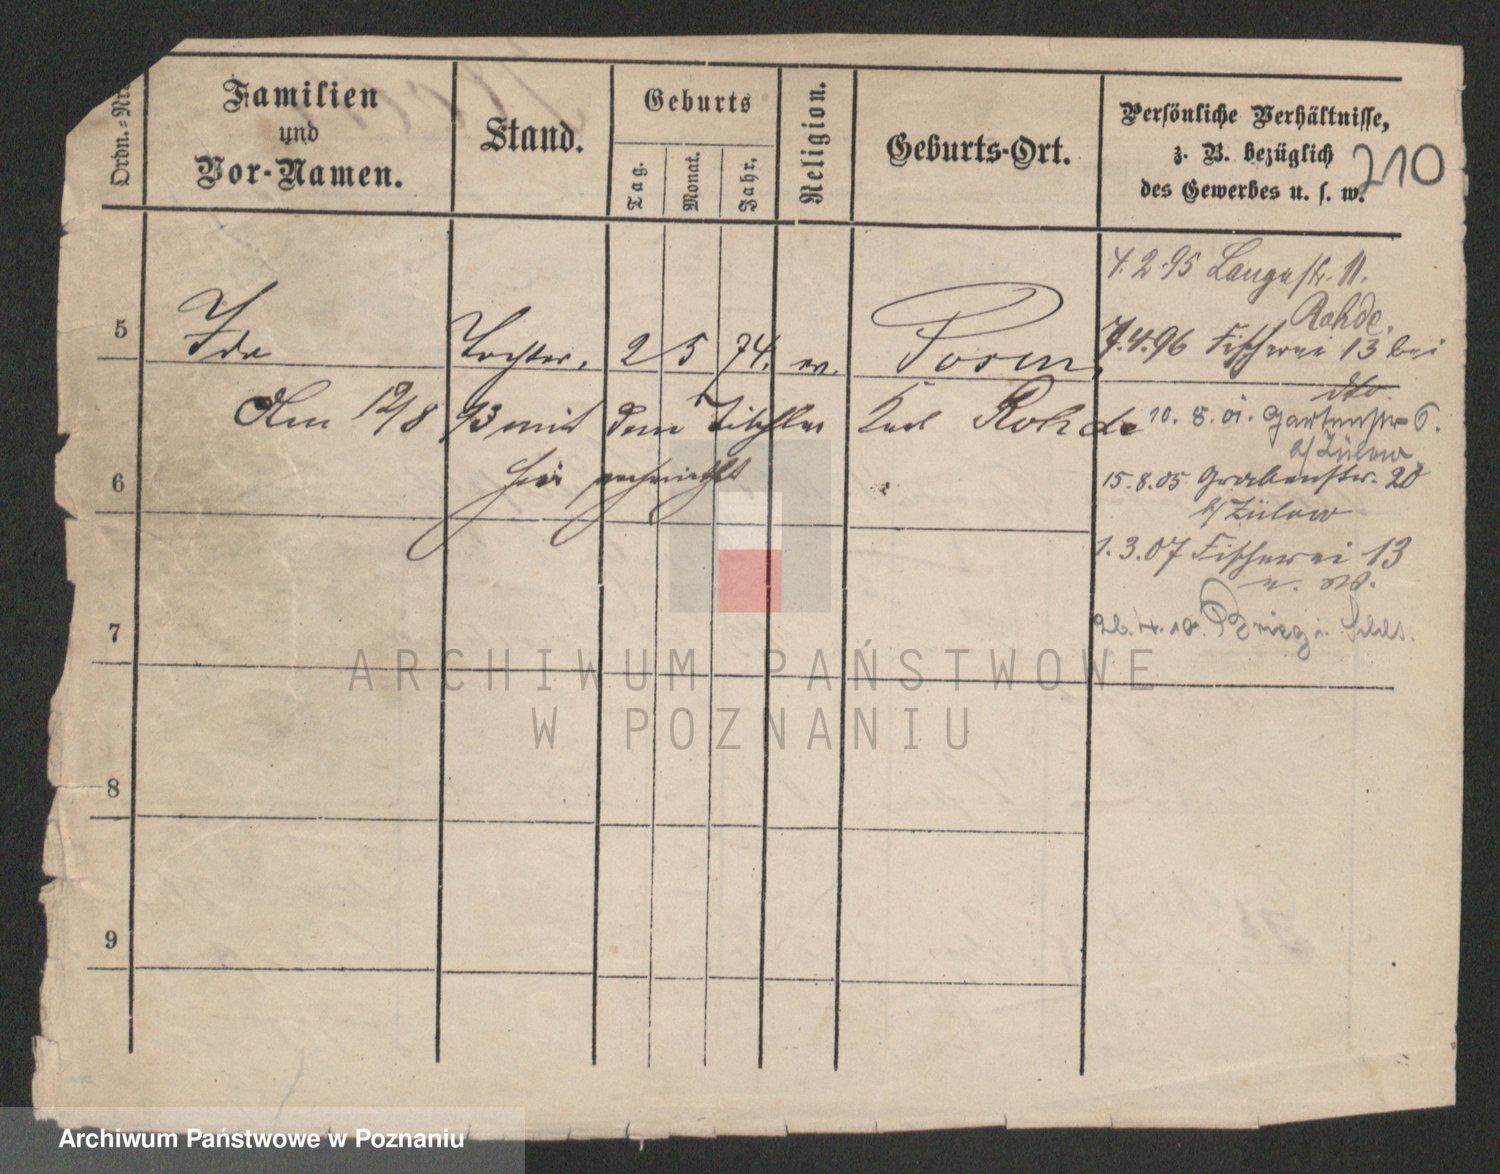 Ordn.=Nr.
Familien
und
Vor-Namen.
Stand.
Geburts
Tag.
Monat.
Jahr.
Religion.
Geburts-Ort.
Persönliche Verhältnisse,
z. B. bezüglich
des Gewerbes u. s. w.
210
4.2.95 Langestr. 11.
Rohde.
5 Ida Tochter. 2 5 74. ev. Posen.
7.4.96 Fischerei 13 bei
dto.
Am 12/8 93 mit dem Tischler Carl Rohde
10. 8. 01. Gartenstr 6.
b/ Zülow
6 hier verheirathet
15.8.05 Grabenstr. 20
b/ Zülow
1.3.07 Fischerei 13
u. W.
7 26.4.10. Brieg i. Schls.
8
9
ARCHIWUM PAŃSTWOWE
W POZNANIU
Archiwum Państwowe w Poznaniu